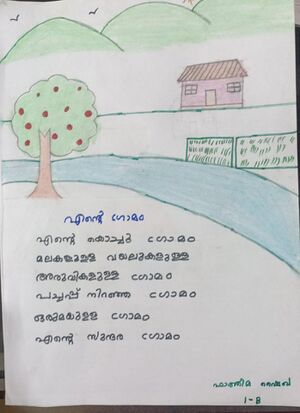 എന്റെ ഗ്രാമം
എന്റെ കൊച്ചു ഗ്രാമം
മലകളുള്ള വയലുകളുള്ള
അരുവികളുള്ള ഗ്രാമം
പച്ചപ്പ് നിറഞ്ഞ ഗ്രാമം
ഒരുമയുള്ള ഗ്രാമം
എന്റെ സുന്ദര ഗ്രാമം
ഫാത്തിമ
1-B